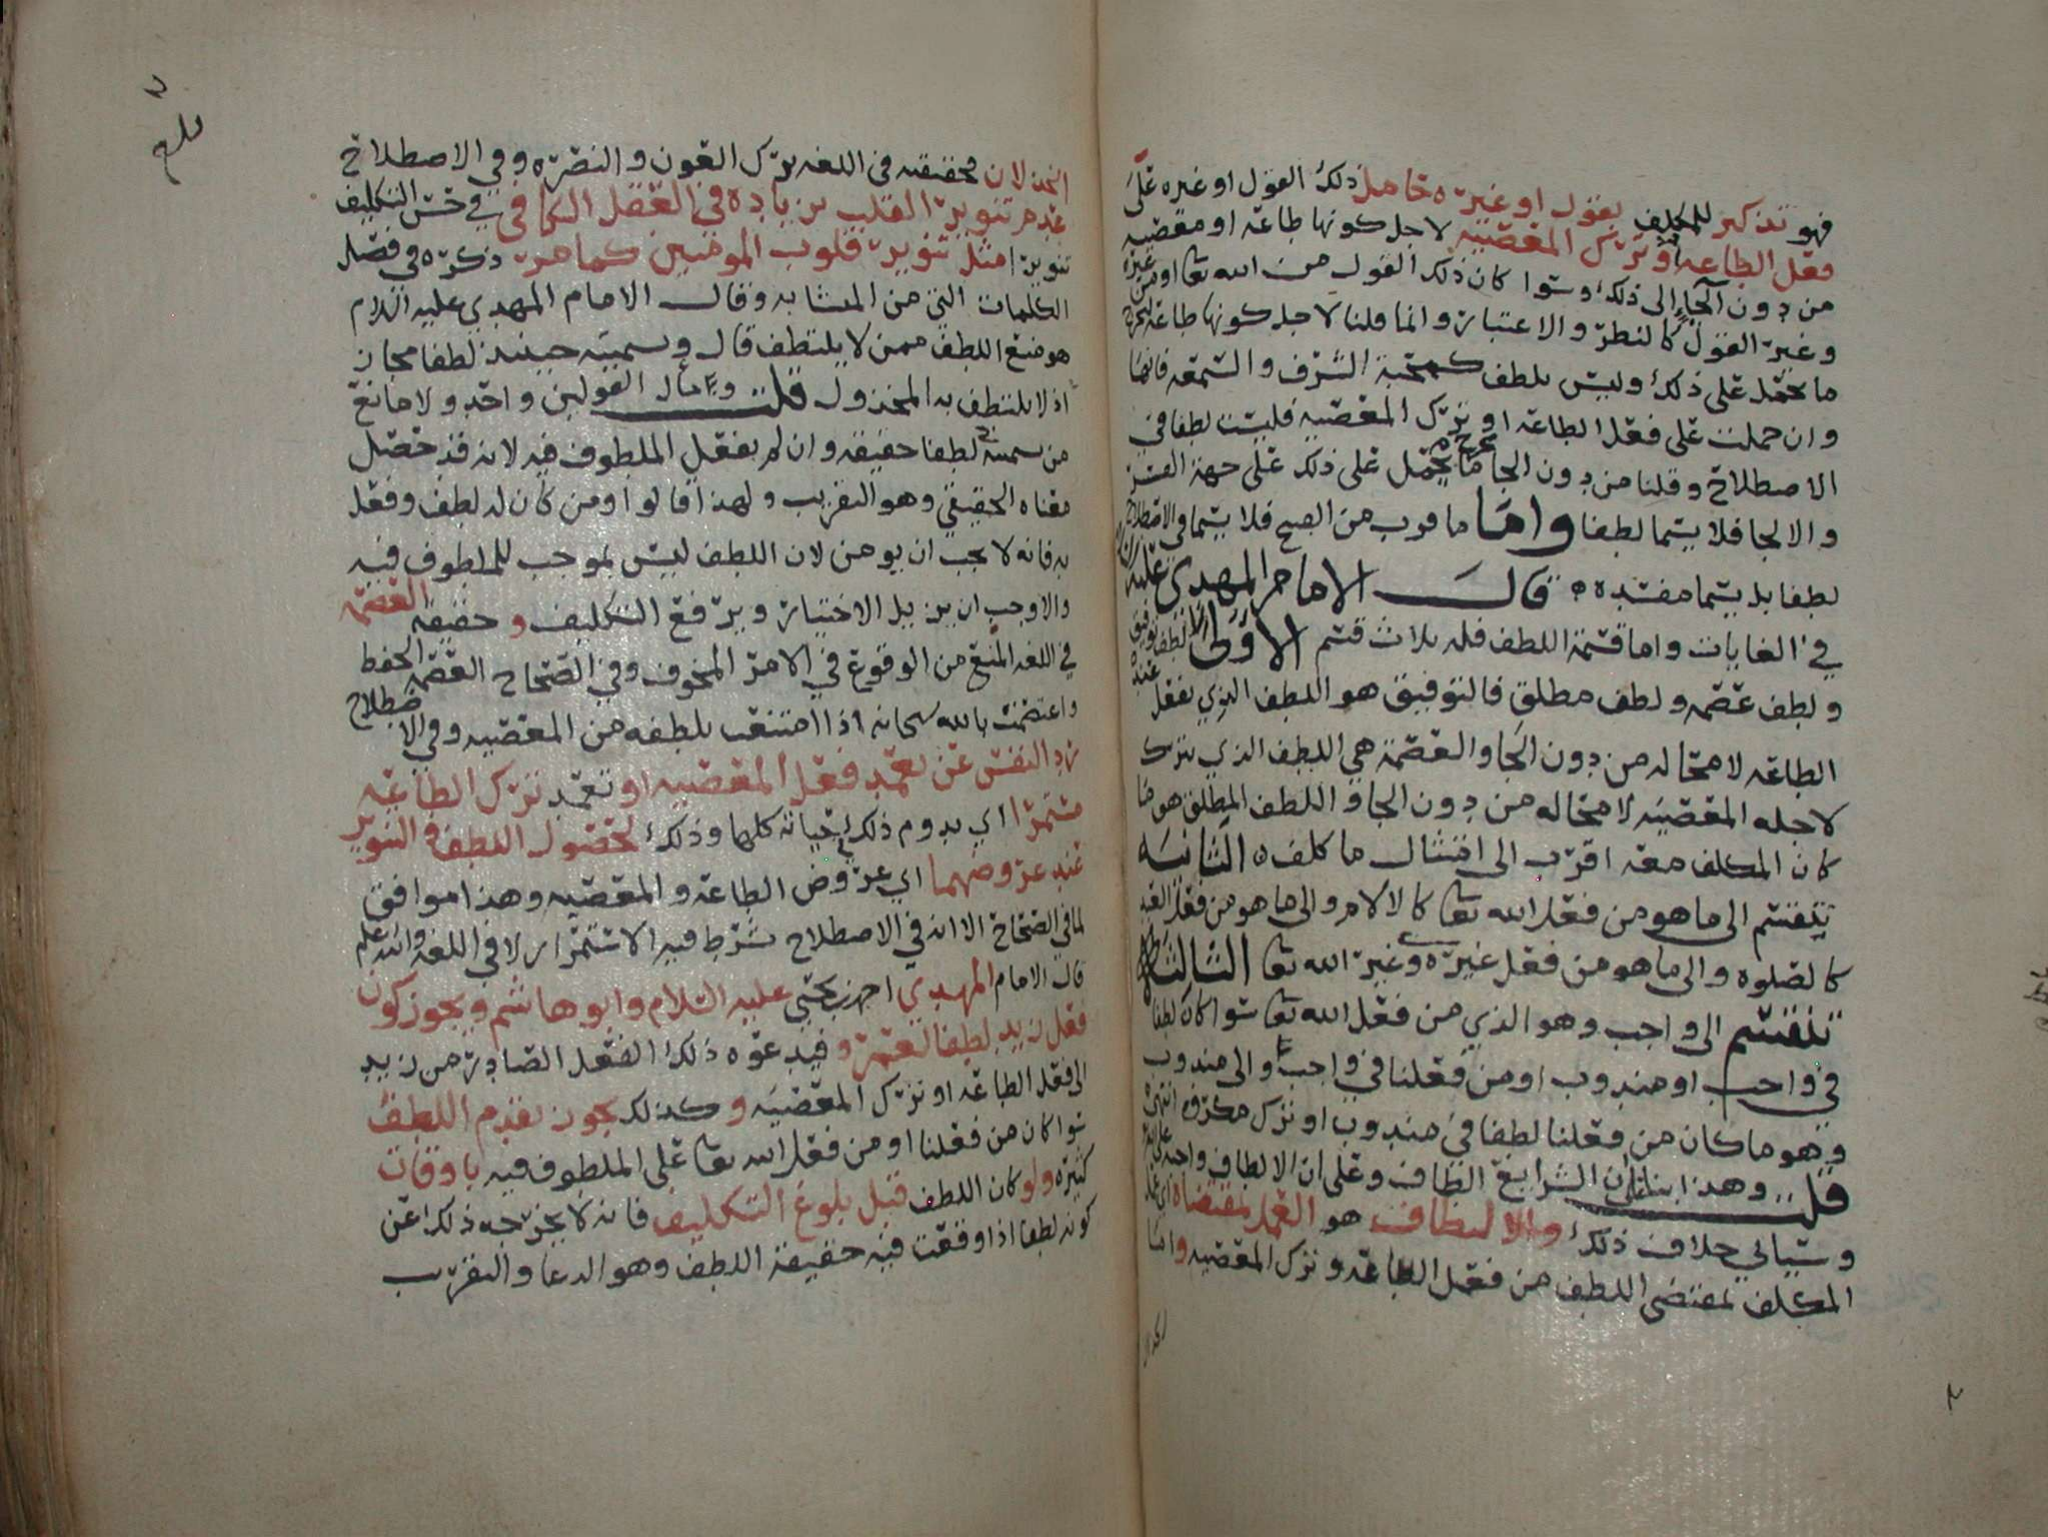 فهو تذكير للمكلف بقول او غيره حامل ذلك القول او غيره على
فعل الطاعه او ترك المعصيه لا جل كونها طاعه او معصيه
من دون الجاء الى ذلك وسوا كان ذلك القول من الله تعا او من غيره
وغير القول كالنظر والاعتبار وانما قلنا لاجل كونها طاعه ليخرج
ما يحمل على ذلك وليس بلطف كمحبة الشرف والسمعه فانها
وان حملت على فعل الطاعه او ترك المعصيه فليست لطفا في
الاصطلاح وقلنا من دون الجا يخرج ما يحمل على ذلك على جهة القسر
والالجا فلا يسما لطفا واما ما قرب من القبيح فلا يسما في الاصطلاح
لطفا بل يسما مفسده قال الامام المهدي عليه
في الغايات واما قسمة اللطف فله ثلاث قسم الاولى لطف توفيق
ولطف عصمه ولطف مطلق فالتوفيق هو اللطف الذي يفعل عنده
الطاعه لا محاله من دون الجا والعصمة هي اللطف الذي يترك
لاجله المعصيه لا محاله من دون الجا واللطف المطلق هو ما
كان المكلف معه اقرب الى امتثال ما كلف الثانيه
تنقسم الى ما هو من فعل الله تعا كالالام والى ما هو من فعل العبد
كالصلوه والى ما هو من فعل غيره وغير الله تعا الثالثه
تنقسم الى واجب وهو الذي من فعل الله تعا سوا كان لطفا
في واجب او مندوب او من فعلنا في واجب والى مندوب
وهو ما كان من فعلنا لطفا في مندوب او ترك مكروه انتهى
قلت وهذا بنا على ان الشرايع الطاف وعلى ان الالطاف واجبه على الله
وسياتي خلاف ذلك والالتطاف هو العمل بمقتضاه اي عمل
المكلف بمقتضى اللطف من فعل الطاعه وترك المعصيه واما
الخذلان فحقيقته في اللغه ترك العون والنصره وفي الاصطلاح
عدم تنوير القلب بزيادة في العقل الكافي في حسن التكليف
تنويرا مثل تنوير قلوب المومنين كما مر ذكره في فصل
الكلمات التي من المتشابه وقال الامام المهدي عليه السلام
هو منع اللطف ممن لا يلتطف قال وتسميته حينئذ لطفا مجاز
اذ لا يلتطف به المخذول قلت ومآل القولين واحد ولا مانع
من تسميته لطفا حقيقه وان لم يفعل الملطوف فيه لانه قد حصل
معناه الحقيقي وهو التقريب ولهذا قالوا ومن كان له لطف وفعل
به فانه لا يجب ان يومن لان اللطف ليس بموجب للملطوف فيه
والا وجب ان يزيل الاختيار ويرفع التكليف وحقيقة العصمه
في اللغه المنع من الوقوع في الامر المخوف وفي الصحاح العصمه الحفظ
واعتصمت بالله سبحانه اذا امتنعت بلطفه من المعصيه وفي الاصطلاح
رد النفس عن تعمد فعل المعصيه او تعمد ترك الطاعه
مستمرا اي يدوم ذلك حياته كلها وذلك لحصول اللطف والتنوير
عند عروضهما اي عروض الطاعه والمعصيه وهذا موافق
لما في الصحاح الا انه في الاصطلاح شرط فيه الاستمرار لا في اللغه والله اعلم
قال الامام المهدي احمد بن يحيى عليه السلام وابو هاشم ويجوز كون
فعل زيد لطفا لعمرو فيدعوه ذلك الفعل الصادر من زيد
الى فعل الطاعه او ترك المعصيه وكذلك يجوز تقدم اللطف
سوا كان من فعلنا او من فعل الله تعا على الملطوف فيه باوقات
كثيره ولو كان اللطف قبل بلوغ التكليف فانه لا يخرجه ذلك عن
كونه لطفا اذا وقعت فيه حقيقة اللطف وهو الدعا والتقريب